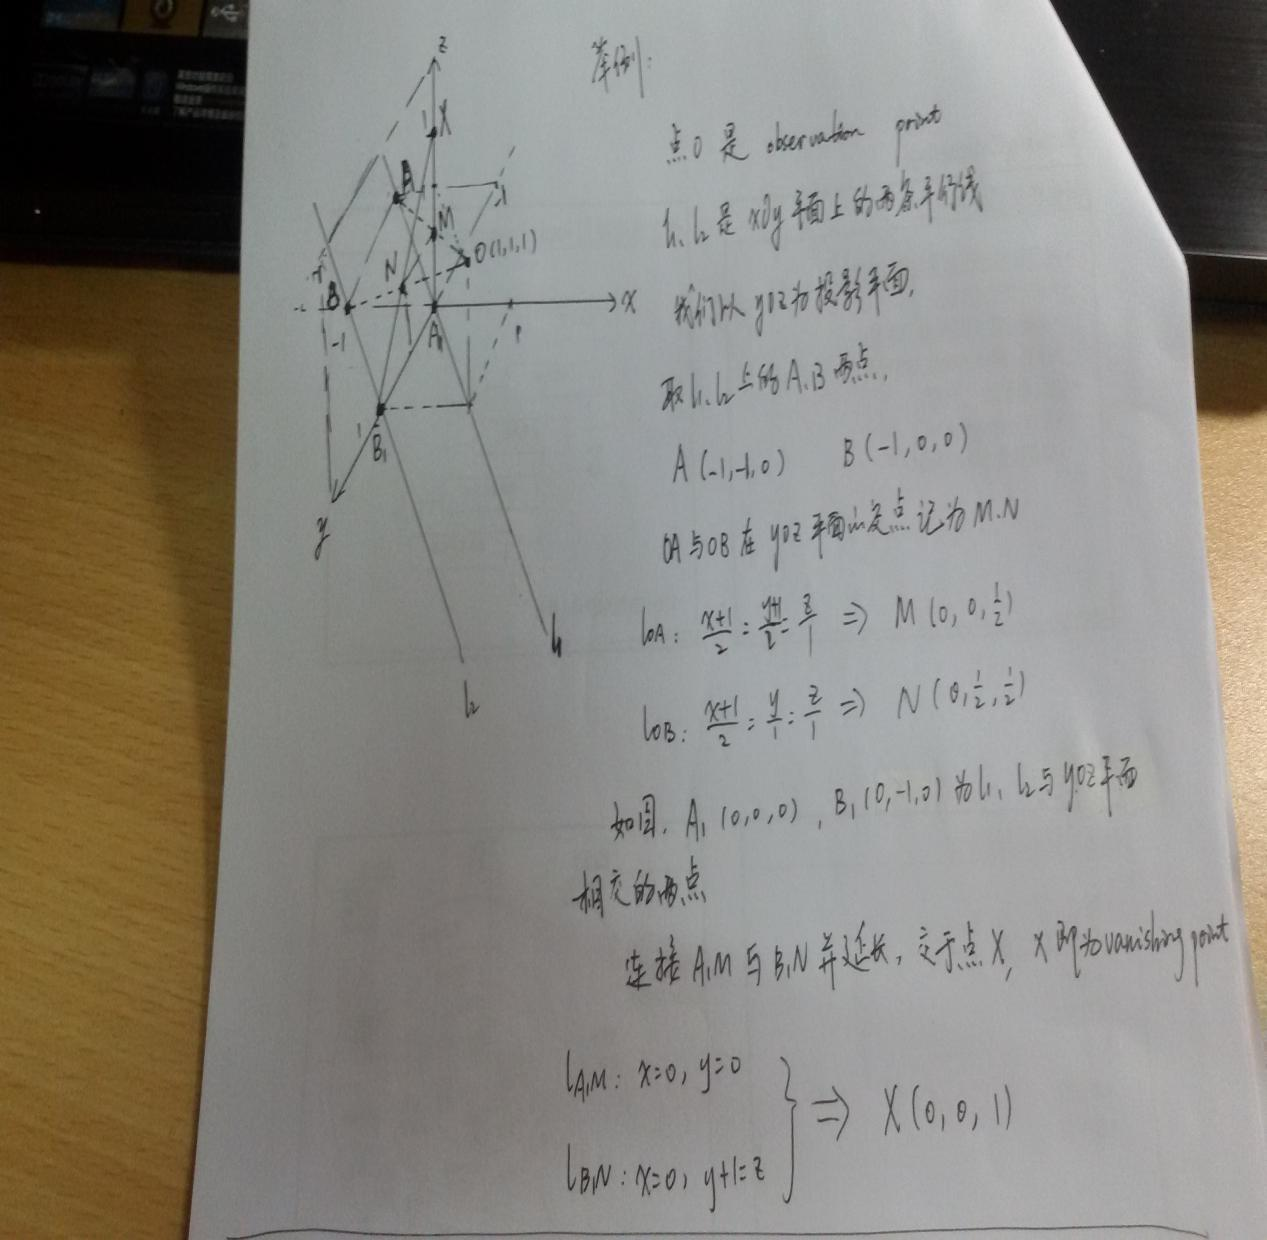 举例:
点O是 observation point
l₁、l₂是 xOy 平面上的两条平行线
我们以 yOz 为投影平面,
取 l₁、l₂ 上的 A、B 两点,
A (-1,-1,0) B (-1,0,0)
OA 与 OB 在 yOz 平面的交点记为 M、N
lOA: (x+1)/2 = (y+1)/2 = z/1 ⇒ M (0, 0, 1/2)
lOB: (x+1)/2 = y/1 = z/1 ⇒ N (0, 1/2, 1/2)
如图, A₁ (0,0,0), B₁ (0,-1,0) 为 l₁、l₂ 与 yOz 平面
相交的两点
连接 A₁M 与 B₁N 并延长, 交于点 X, X 即为 vanishing point
lA₁M: x=0, y=0
lB₁N: x=0, y+1=z
} ⇒ X (0, 0, 1)
z
1
X
A
M
-1
N
O(1,1,1)
-1
B
-1
A₁
1
x
1
B₁
y
l₁
l₂